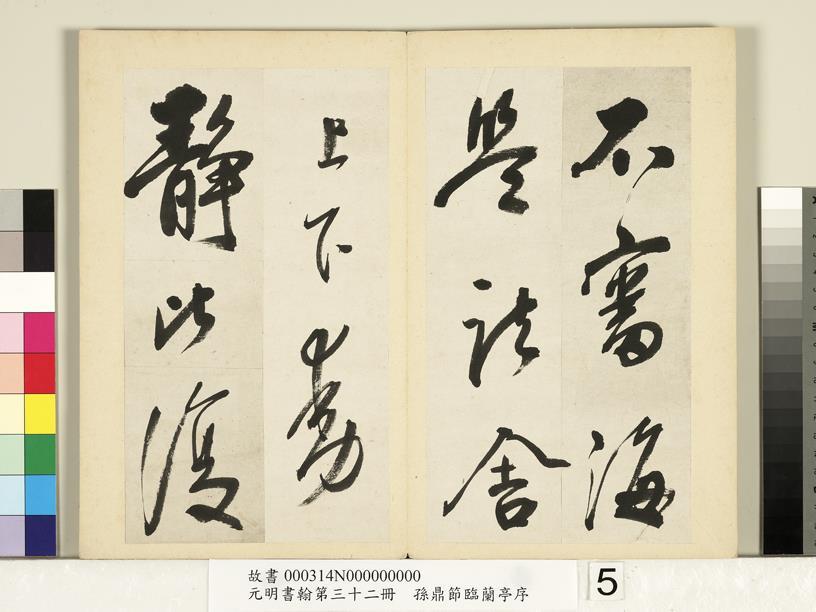 不審海
是 舍
上下動
靜此復
故書 000314N000000000
元明書翰第三十二冊 孫鼎節臨蘭亭序
5